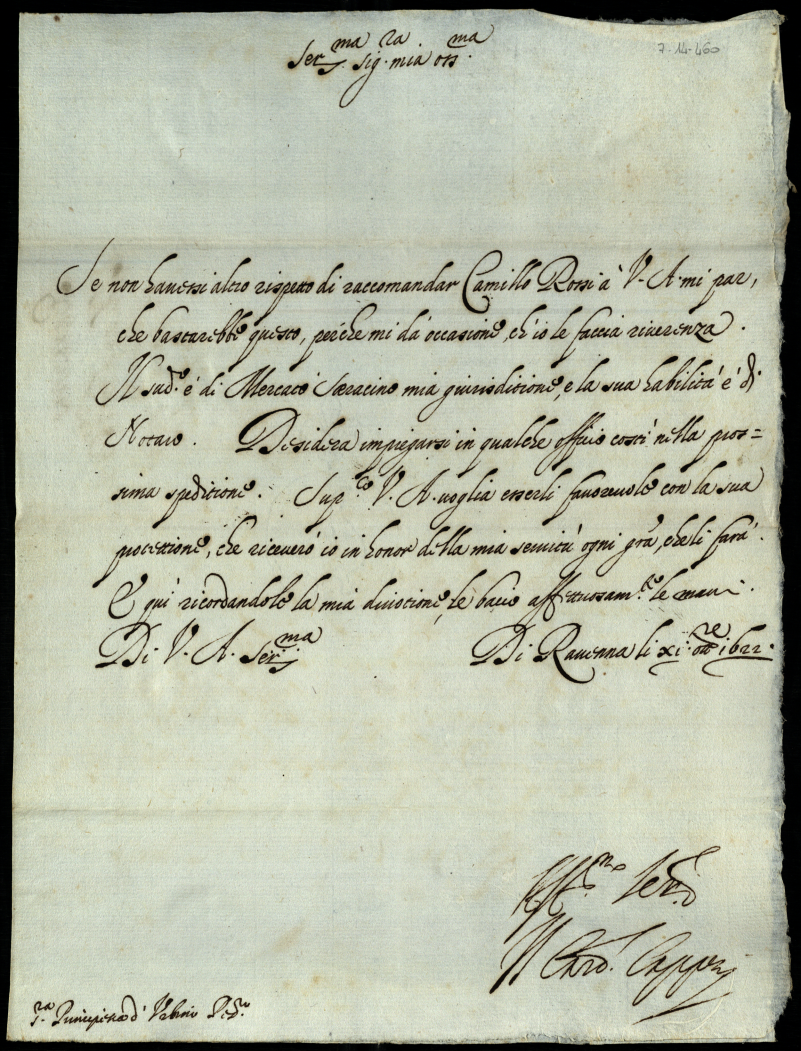 Ser.ma sig.ra mia oss.ma
7-14-460
Se non havessi altro rispetto di raccomandar Camillo Rossi à V. A. mi par,
che bastarebbe questo, perche mi dà occasione, ch'io le faccia riverenza.
Il sud.o è di Mercato Saracino mia giurisditione, e la sua habilità è di
Notaio. Desidera impiegarsi in qualche offitio costì nella pros=
sima speditione. Sup.co V. A. voglia esserli favorevole con la sua
protettione, che riceverò io in honor della mia servitù ogni gra, che li farà.
E quì ricordandole la mia divotione, le bacio affettuosam.te le mani.
Di V. A. Ser.ma Di Ravenna li xi. ott.re 1622.
Aff.mo Ser.
Il Card. Capponi
S.ra Principessa d' Urbino Ved.a